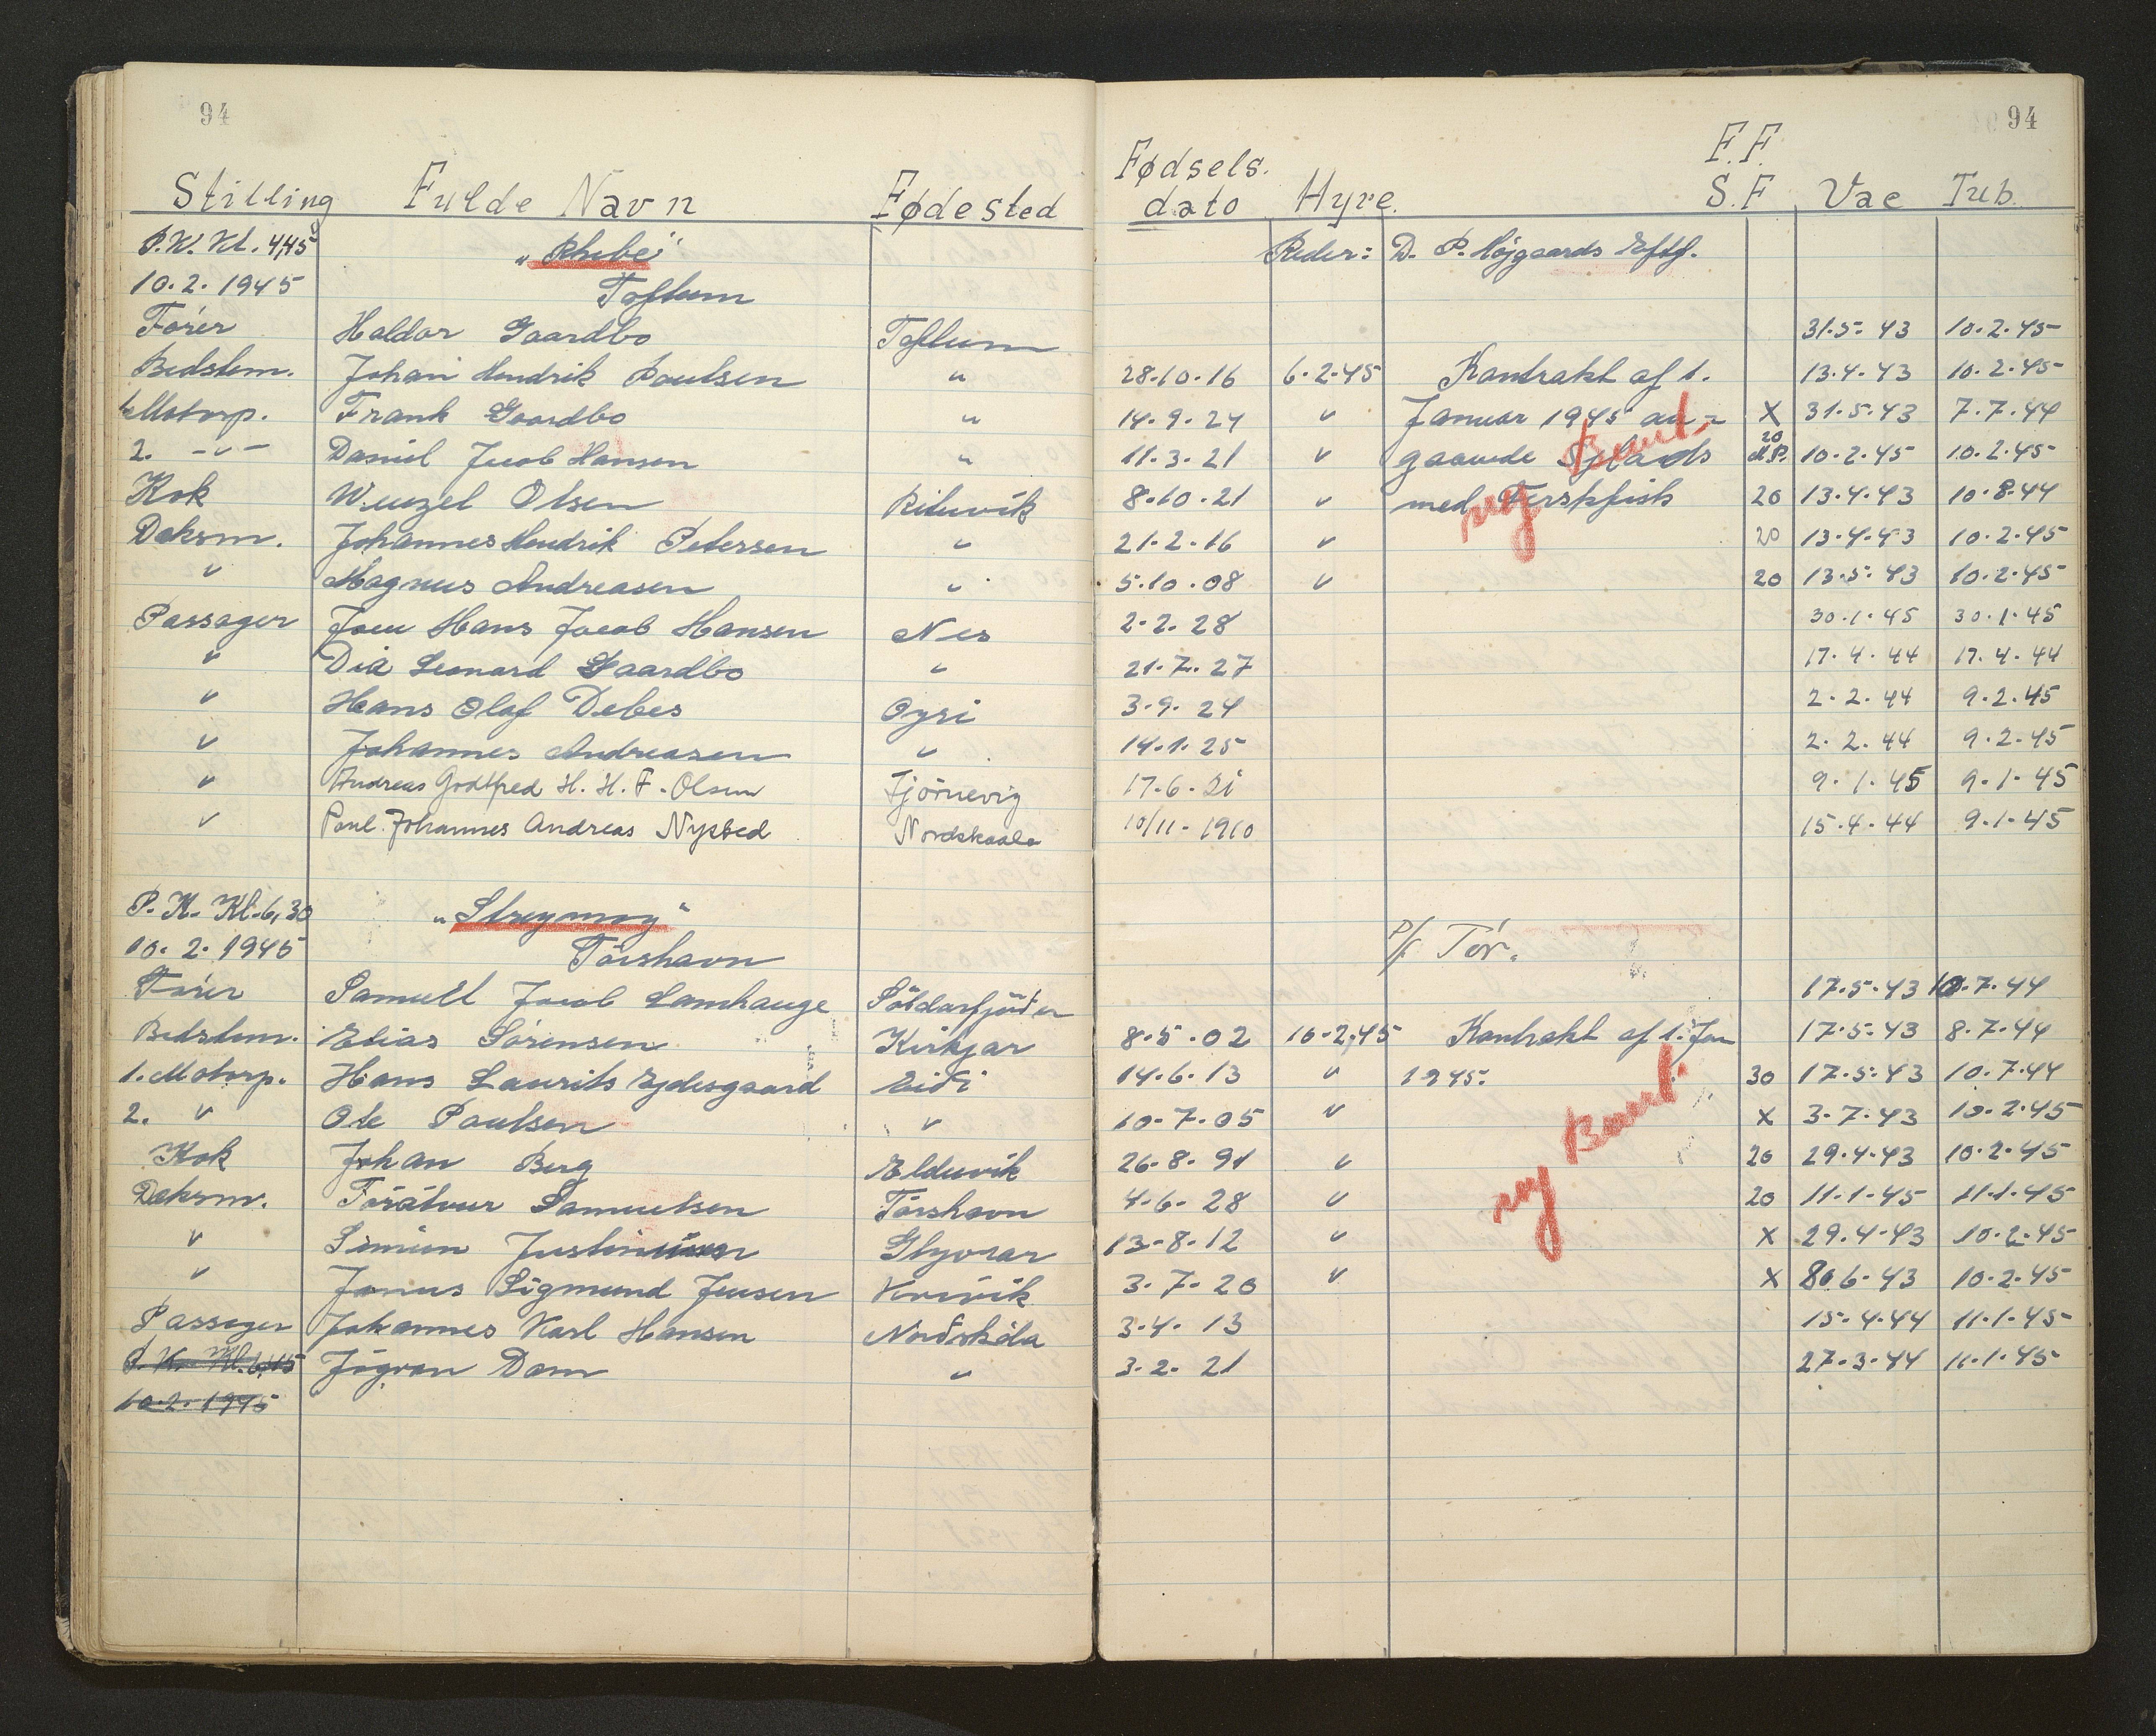 94
Stilling Fulde Navn Fødested
P.K. Kl. 4,45 „Phibe"
10.2.1945 Toftum
Fører Haldor Gaardbo Toftum
Bedstem. Johan Hendrik Poulsen "
1. Motorp. Frank Gaardbo "
2. -"- Daniel Jacob Hansen "
Kok Wenzel Olsen Rituvik
Deksm. Johannes Hendrik Petersen "
" Magnus Andreasen "
Passager Joen Hans Jacob Hansen Nes
" Dia Leonard Gaardbo "
" Hans Olaf Debes Oyri
" Johannes Andreasen "
" Andreas Godtfred H. H. F. Olsen Tjörnevig
" Poul Johannes Andreas Nysted Nordskaale
P.K. Kl. 6,30 „Streymoy"
10.2.1945 Tórshavn
Förer Samuell Jacob Lamhauge Söldarfjörður
Bedstem. Elias Sörensen Kirkjar
1. Motorp. Hans Laurits Ejdesgaard Eiði
2. " Ole Poulsen "
Kok Johan Berg Elduvik
Deksm. Torálvur Samuelsen Tórshavn
" Simun Justinussen Glyvrar
" Jonus Sigmund Jensen Kvívík
Passager Johannes Karl Hansen Norðskála
P.K. Kl. 6,45 Jógvan Dam "
10.2.1945
94
Fødsels. F.F.
dato Hyre. S.F Vac Tub.
Reder: D. P. Højgaards Eftf.
31.5.43 10.2.45
28.10.16 6.2.45 Kontrakt af 1. 13.4.43 10.2.45
14.9.24 " Januar 1945 an- X 31.5.43 7.7.44
11.3.21 " gaaende Islands 20 M.P. 10.2.45 10.2.45
8.10.21 " med Ferskfisk 20 13.4.43 10.8.44
ny Besæt.
21.2.16 " 20 13.4.43 10.2.45
5.10.08 " 20 13.5.43 10.2.45
2.2.28 30.1.45 30.1.45
21.7.27 17.4.44 17.4.44
3.9.24 2.2.44 9.2.45
14.1.25 2.2.44 9.2.45
17.6.21 9.1.45 9.1.45
10/11-1910 15.4.44 9.1.45
P/f Tór.
17.5.43 10.7.44
8.5.02 10.2.45 Kontrakt af 1. Jan 17.5.43 8.7.44
14.6.13 " 1945. 30 17.5.43 10.7.44
10.7.05 " X 3.7.43 10.2.45
26.8.91 " 20 29.4.43 10.2.45
ny Besæt.
4.6.28 " 20 11.1.45 11.1.45
13.8.12 " X 29.4.43 10.2.45
3.7.20 " X 8.6.43 10.2.45
3.4.13 15.4.44 11.1.45
3.2.21 27.3.44 11.1.45